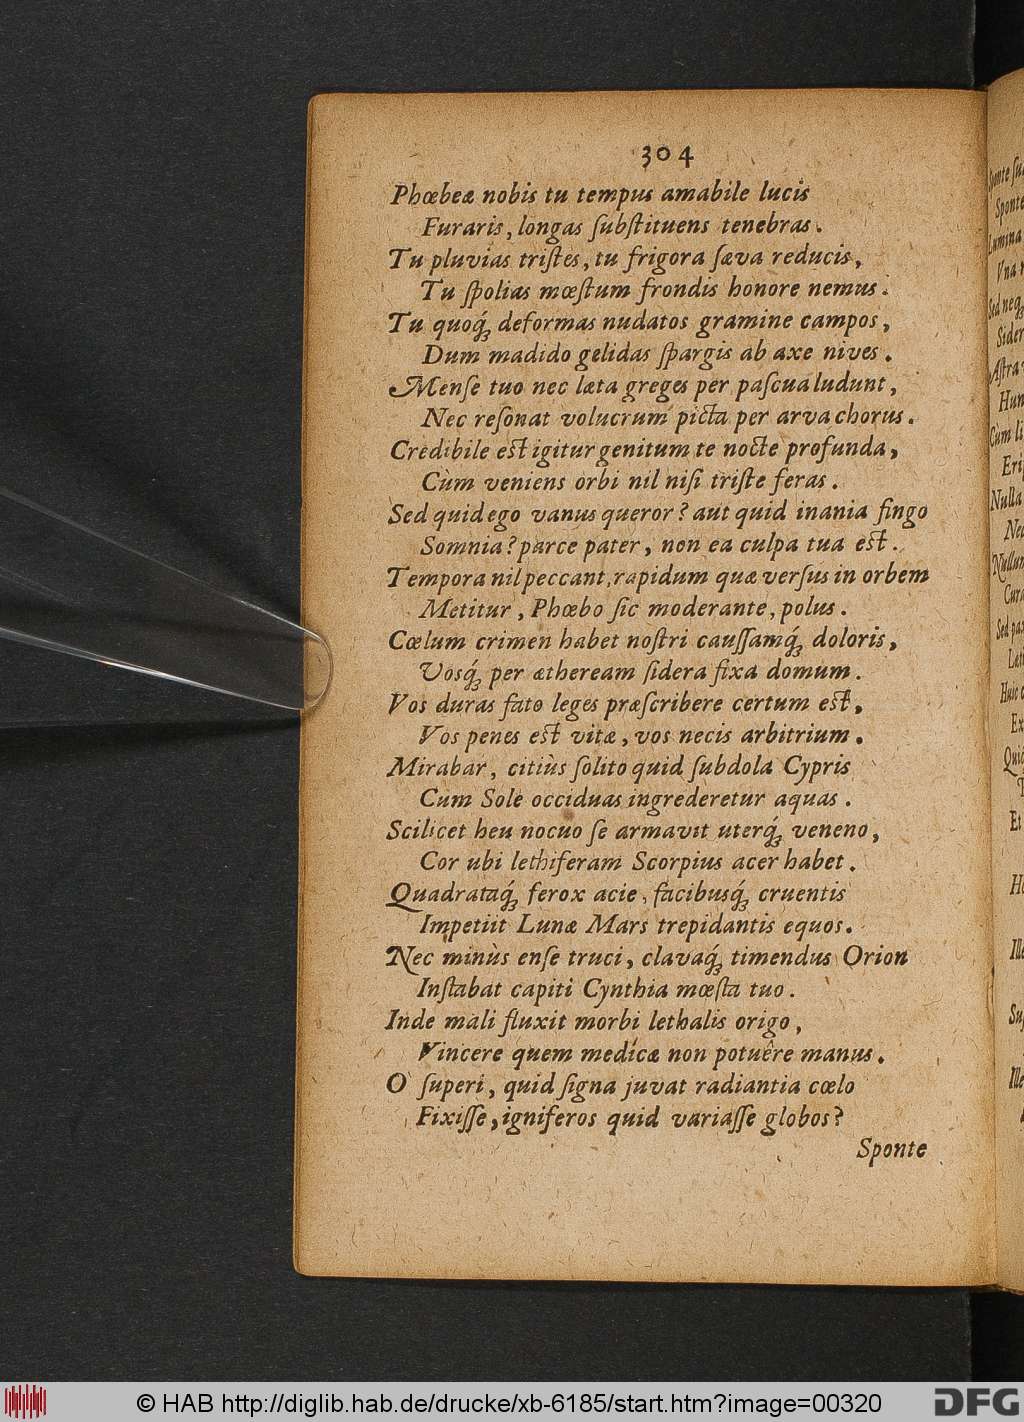 304
Phœbeæ nobis tu tempus amabile lucis
Furaris, longas ſubſtituens tenebras.
Tu pluvias triſtes, tu frigora ſæva reducis,
Tu ſpolias mœſtum frondis honore nemus.
Tu quoq́ꝫ deformas nudatos gramine campos,
Dum madido gelidas ſpargis ab axe nives.
Menſe tuo nec læta greges per paſcua ludunt,
Nec reſonat volucrum picta per arva chorus.
Credibile eſt igitur genitum te nocte profunda,
Cùm veniens orbi nil niſi triſte feras.
Sed quid ego vanus queror? aut quid inania fingo
Somnia? parce pater, non ea culpa tua eſt.
Tempora nil peccant, rapidum quæ verſus in orbem
Metitur, Phœbo ſic moderante, polus.
Cœlum crimen habet noſtri cauſſamq́ꝫ doloris,
Vosq́ꝫ per æthe­ream ſidera fixa domum.
Vos duras fato leges præſcribere certum eſt,
Vos penes eſt vitæ, vos necis arbitrium.
Mirabar, citiùs ſolito quid ſubdola Cypris
Cum Sole occiduas ingrederetur aquas.
Scilicet heu nocuo ſe armavit uterq́ꝫ veneno,
Cor ubi lethiferam Scorpius acer habet.
Quadrataq́ꝫ ferox acie, facibusq́ꝫ cruentis
Impetiit Lunæ Mars trepidantis equos.
Nec minùs enſe truci, clavaq́ꝫ timendus Orion
Inſtabat capiti Cynthia mœſta tuo.
Inde mali fluxit morbi lethalis origo,
Vincere quem medicæ non potuêre manus.
O ſuperi, quid ſigna juvat radiantia cœlo
Fixiſſe, igniferos quid variaſſe globos?
Sponte
© HAB http://diglib.hab.de/drucke/xb-6185/start.htm?image=00320
DFG